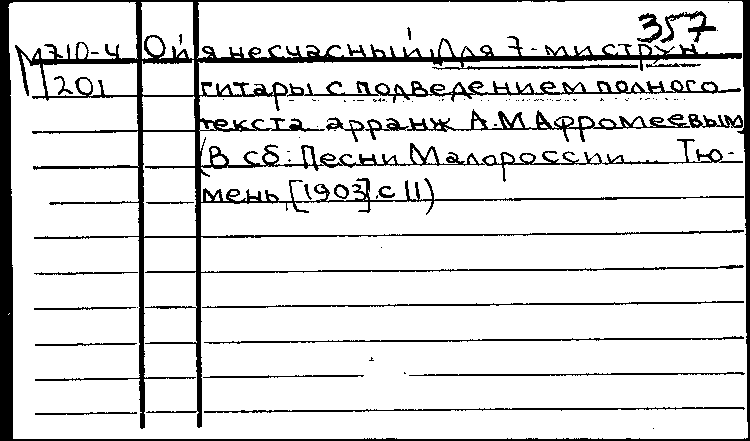 357
М710-4 Ой я несчасный. Для 7-миструн
201 гитары с подведением полного
текста арранж А.М Афромеевым
(В сб: Песни Малороссии... Тю-
мень, [1903] с 11)